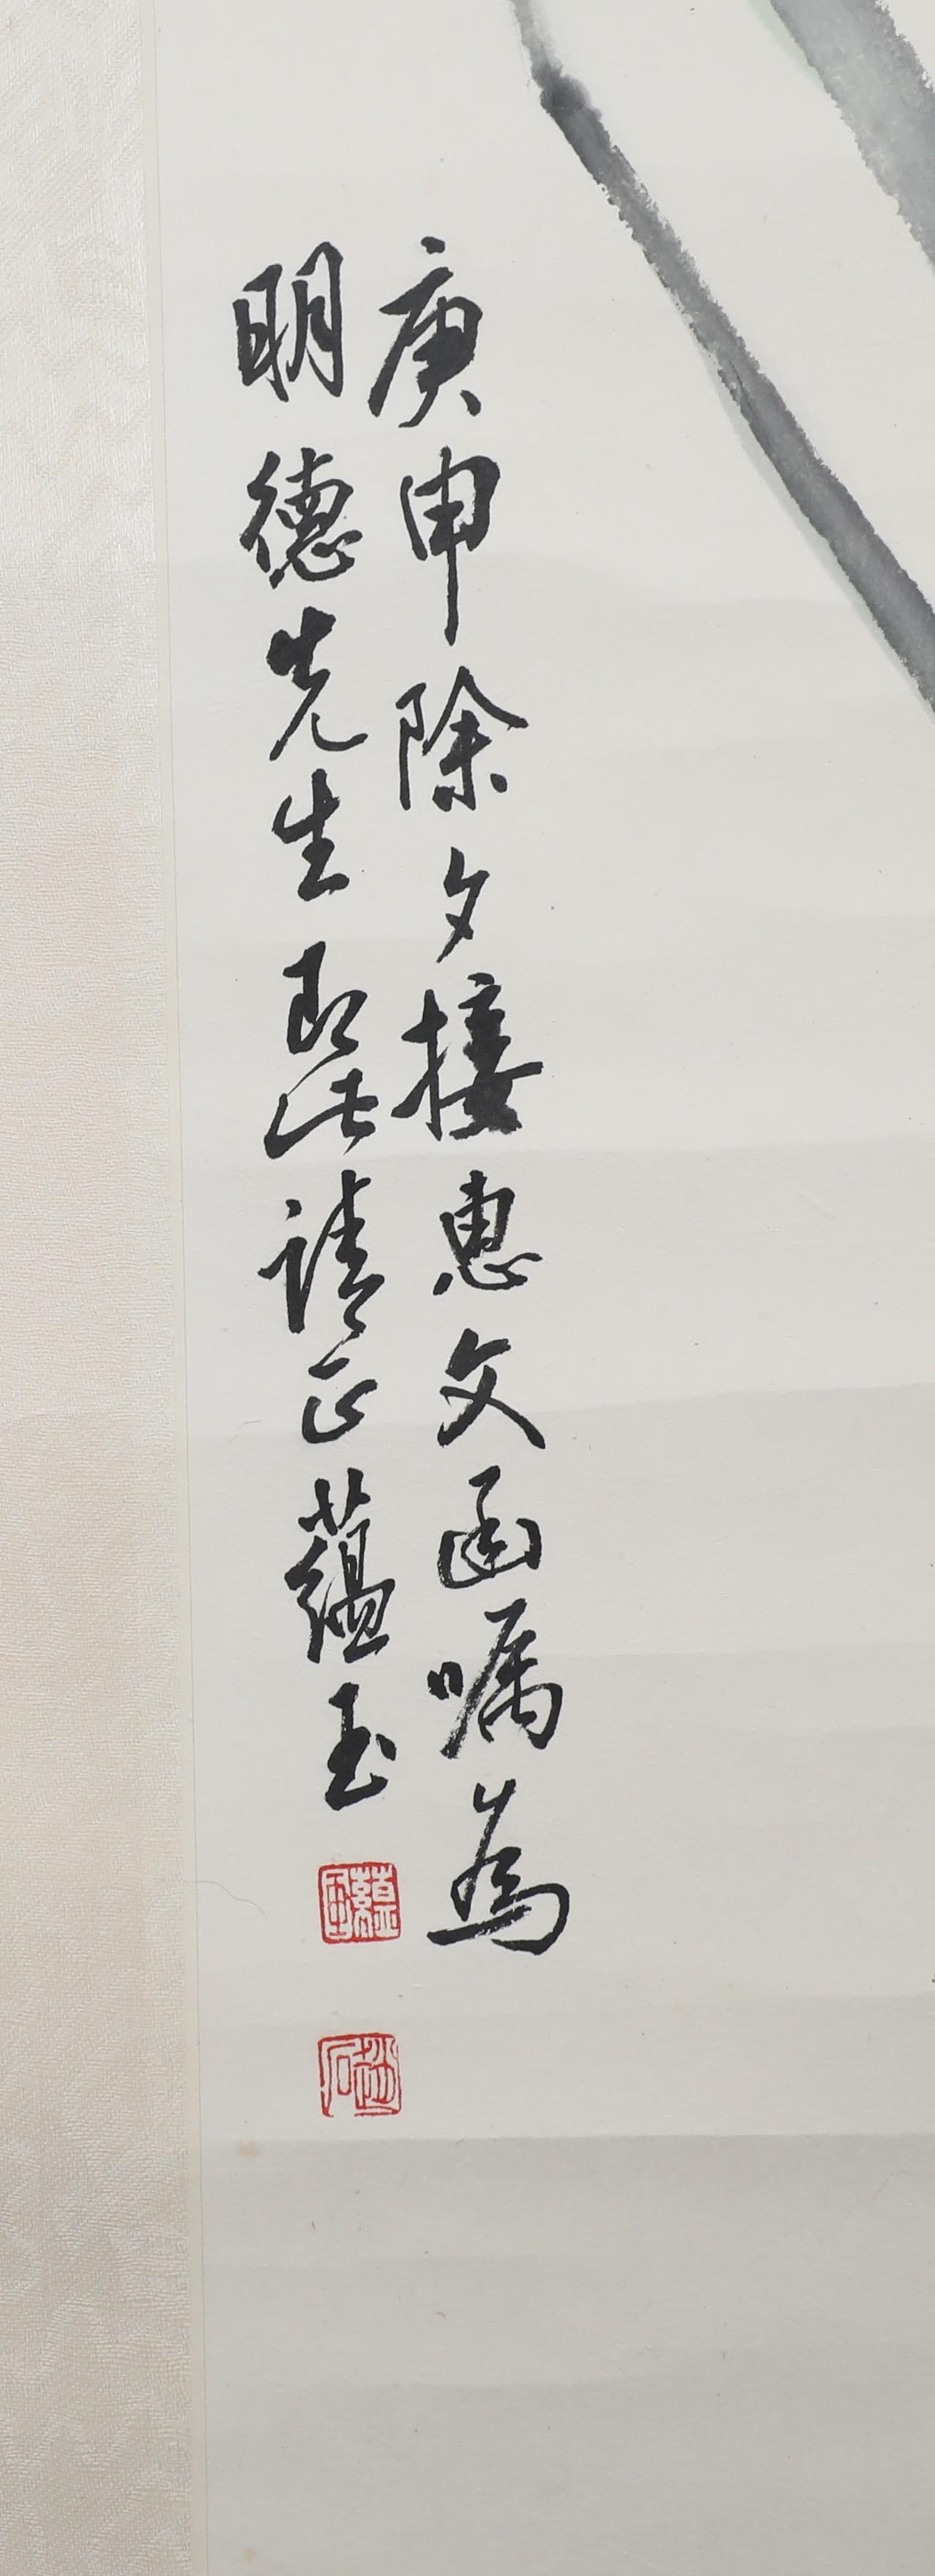 庚申除夕接惠文函嘱為
明德先生 即此請正蘊玉